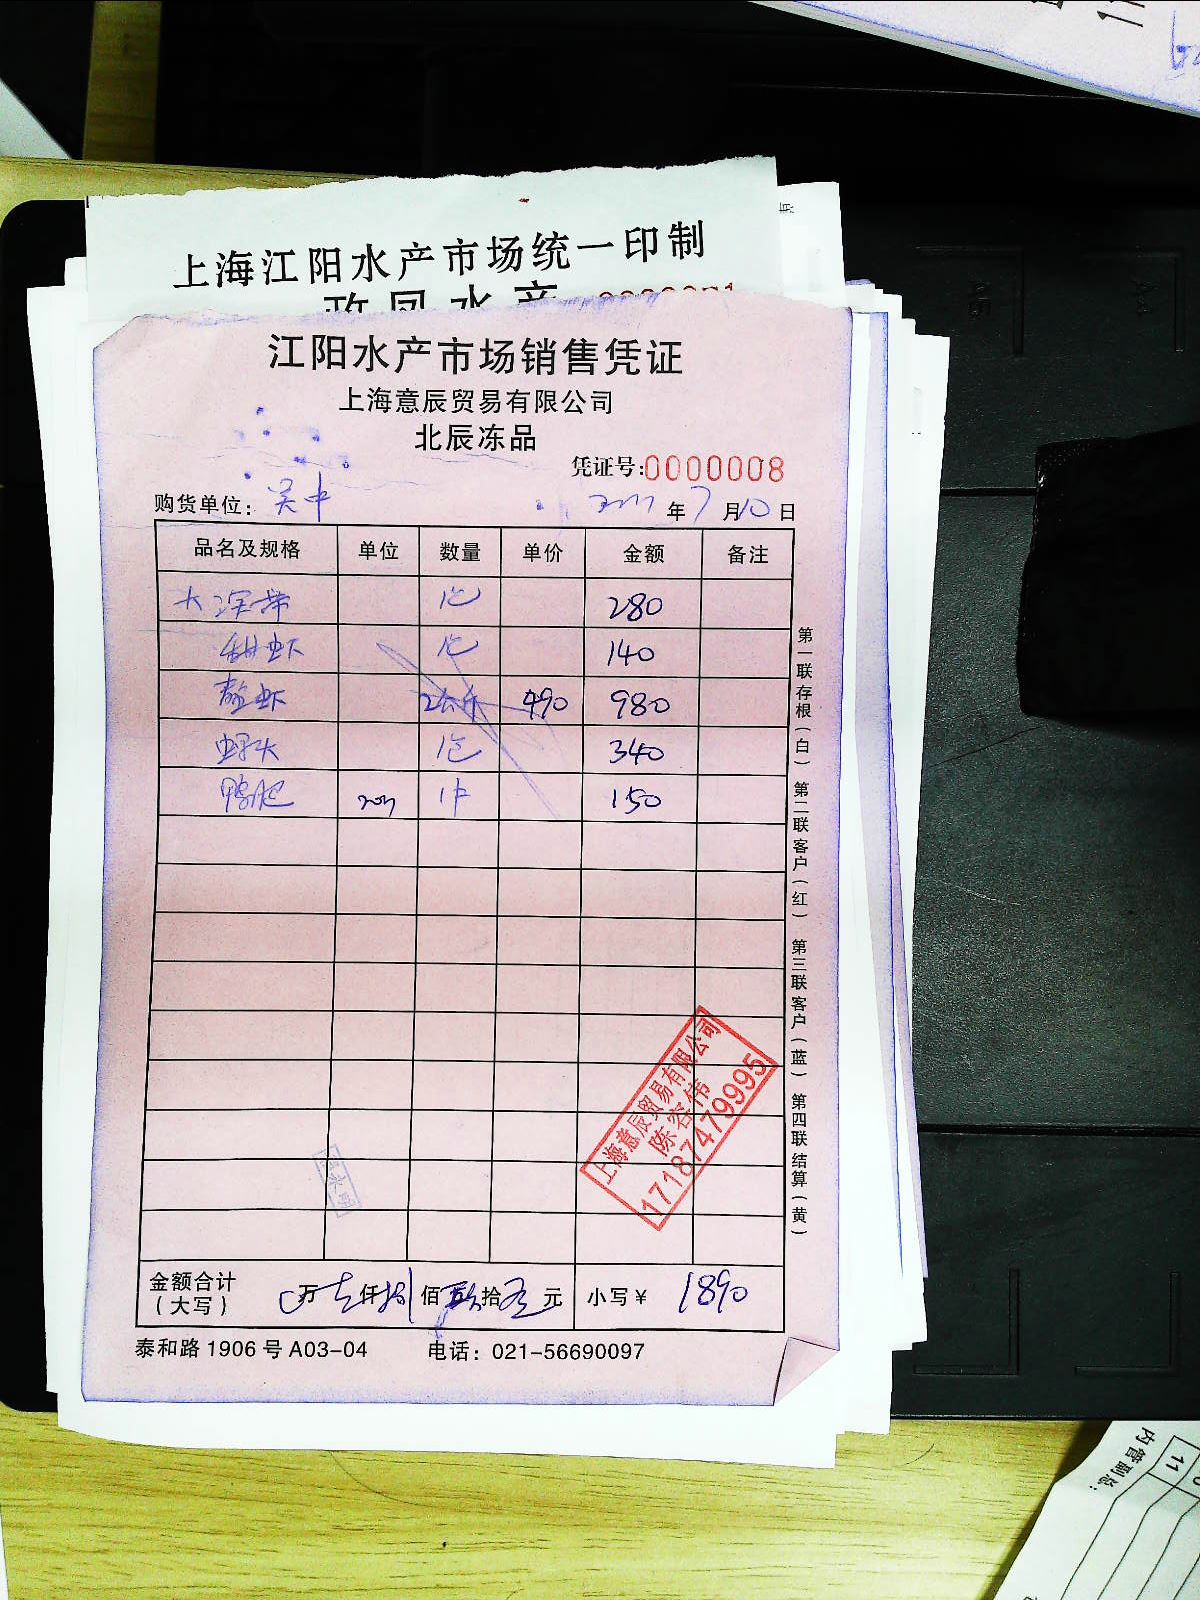 上海江阳水产市场统一印制
江阳水产市场销售凭证
上海意辰贸易有限公司
北辰冻品
凭证号:0000008
购货单位: 吴中 年 7 月 10 日
品名及规格 单位 数量 单价 金额 备注
280
甜虾 140
2公斤 490 980
340
鸭肫 150
第一联存根(白) 第二联客户(红) 第三联客户(蓝) 第四联结算(黄)
上海意辰贸易有限公司
陈容伟
17187479995
金额合计 万 仟 佰 拾 元 小写¥ 1890
(大写)
泰和路1906号A03-04 电话: 021-56690097
内管副总:
11